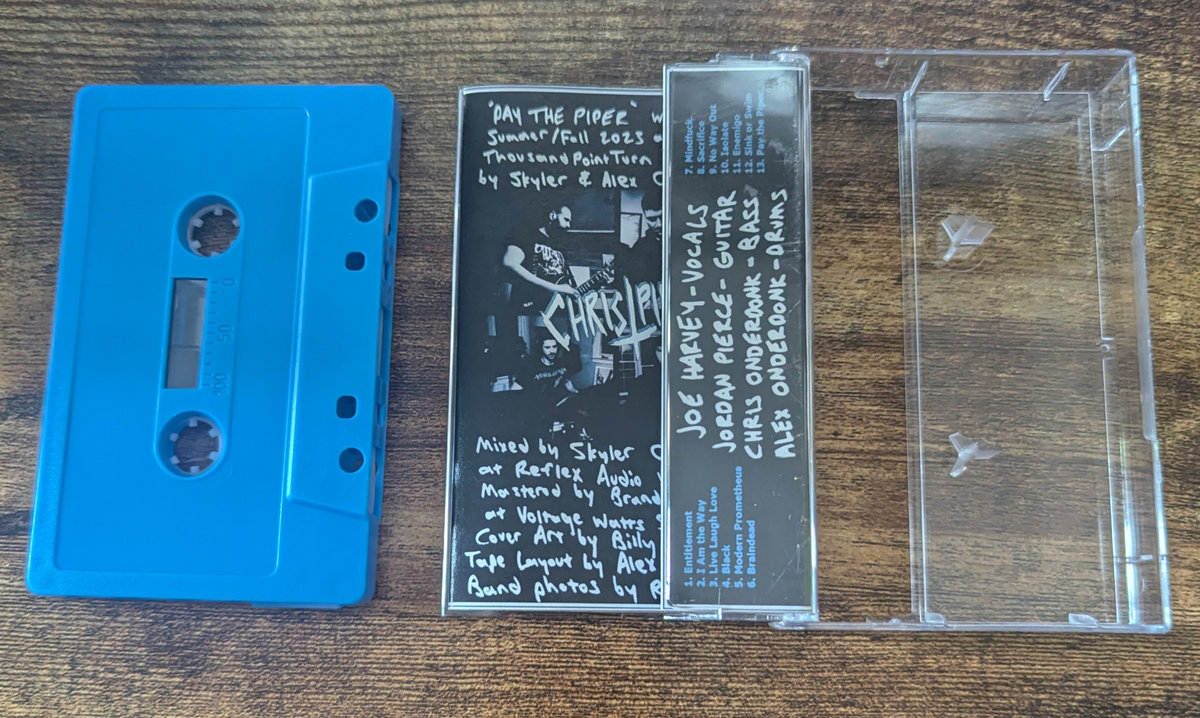 0
50
100
"PAY THE PIPER" W
Summer/Fall 2023
ThousandPointTurn
by Skyler & Alex O
CHRISTPI
Mixed by Skyler
at Reflex Audio
Masterd by Brand
at Voltage Watts
Cover Art by Billy
Tape Layout by Alex
Band photos by R
JOE HARVEY-VOCALS
JORDAN PIERCE-GUITAR
CHRIS ONDERDONK-BASS
ALEX ONDERDONK-DRUMS
1. Entitlement
2. I Am the Way
3. Live Laugh Love
4. Black
5. Modern Prometheus
6. Braindead
7. Mindfuck
8. Sacrifice
9. No Way Out
10. Isolate
11. Enemigo
12. Sink or Swim
13. Pay the Piper